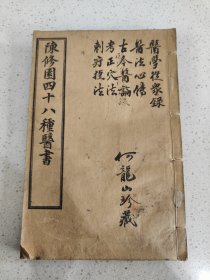 陳修園四十八種醫書
醫學從衆錄
醫法心傳
古今醫論
考正穴法
刺疔捷法
何龍山珍藏